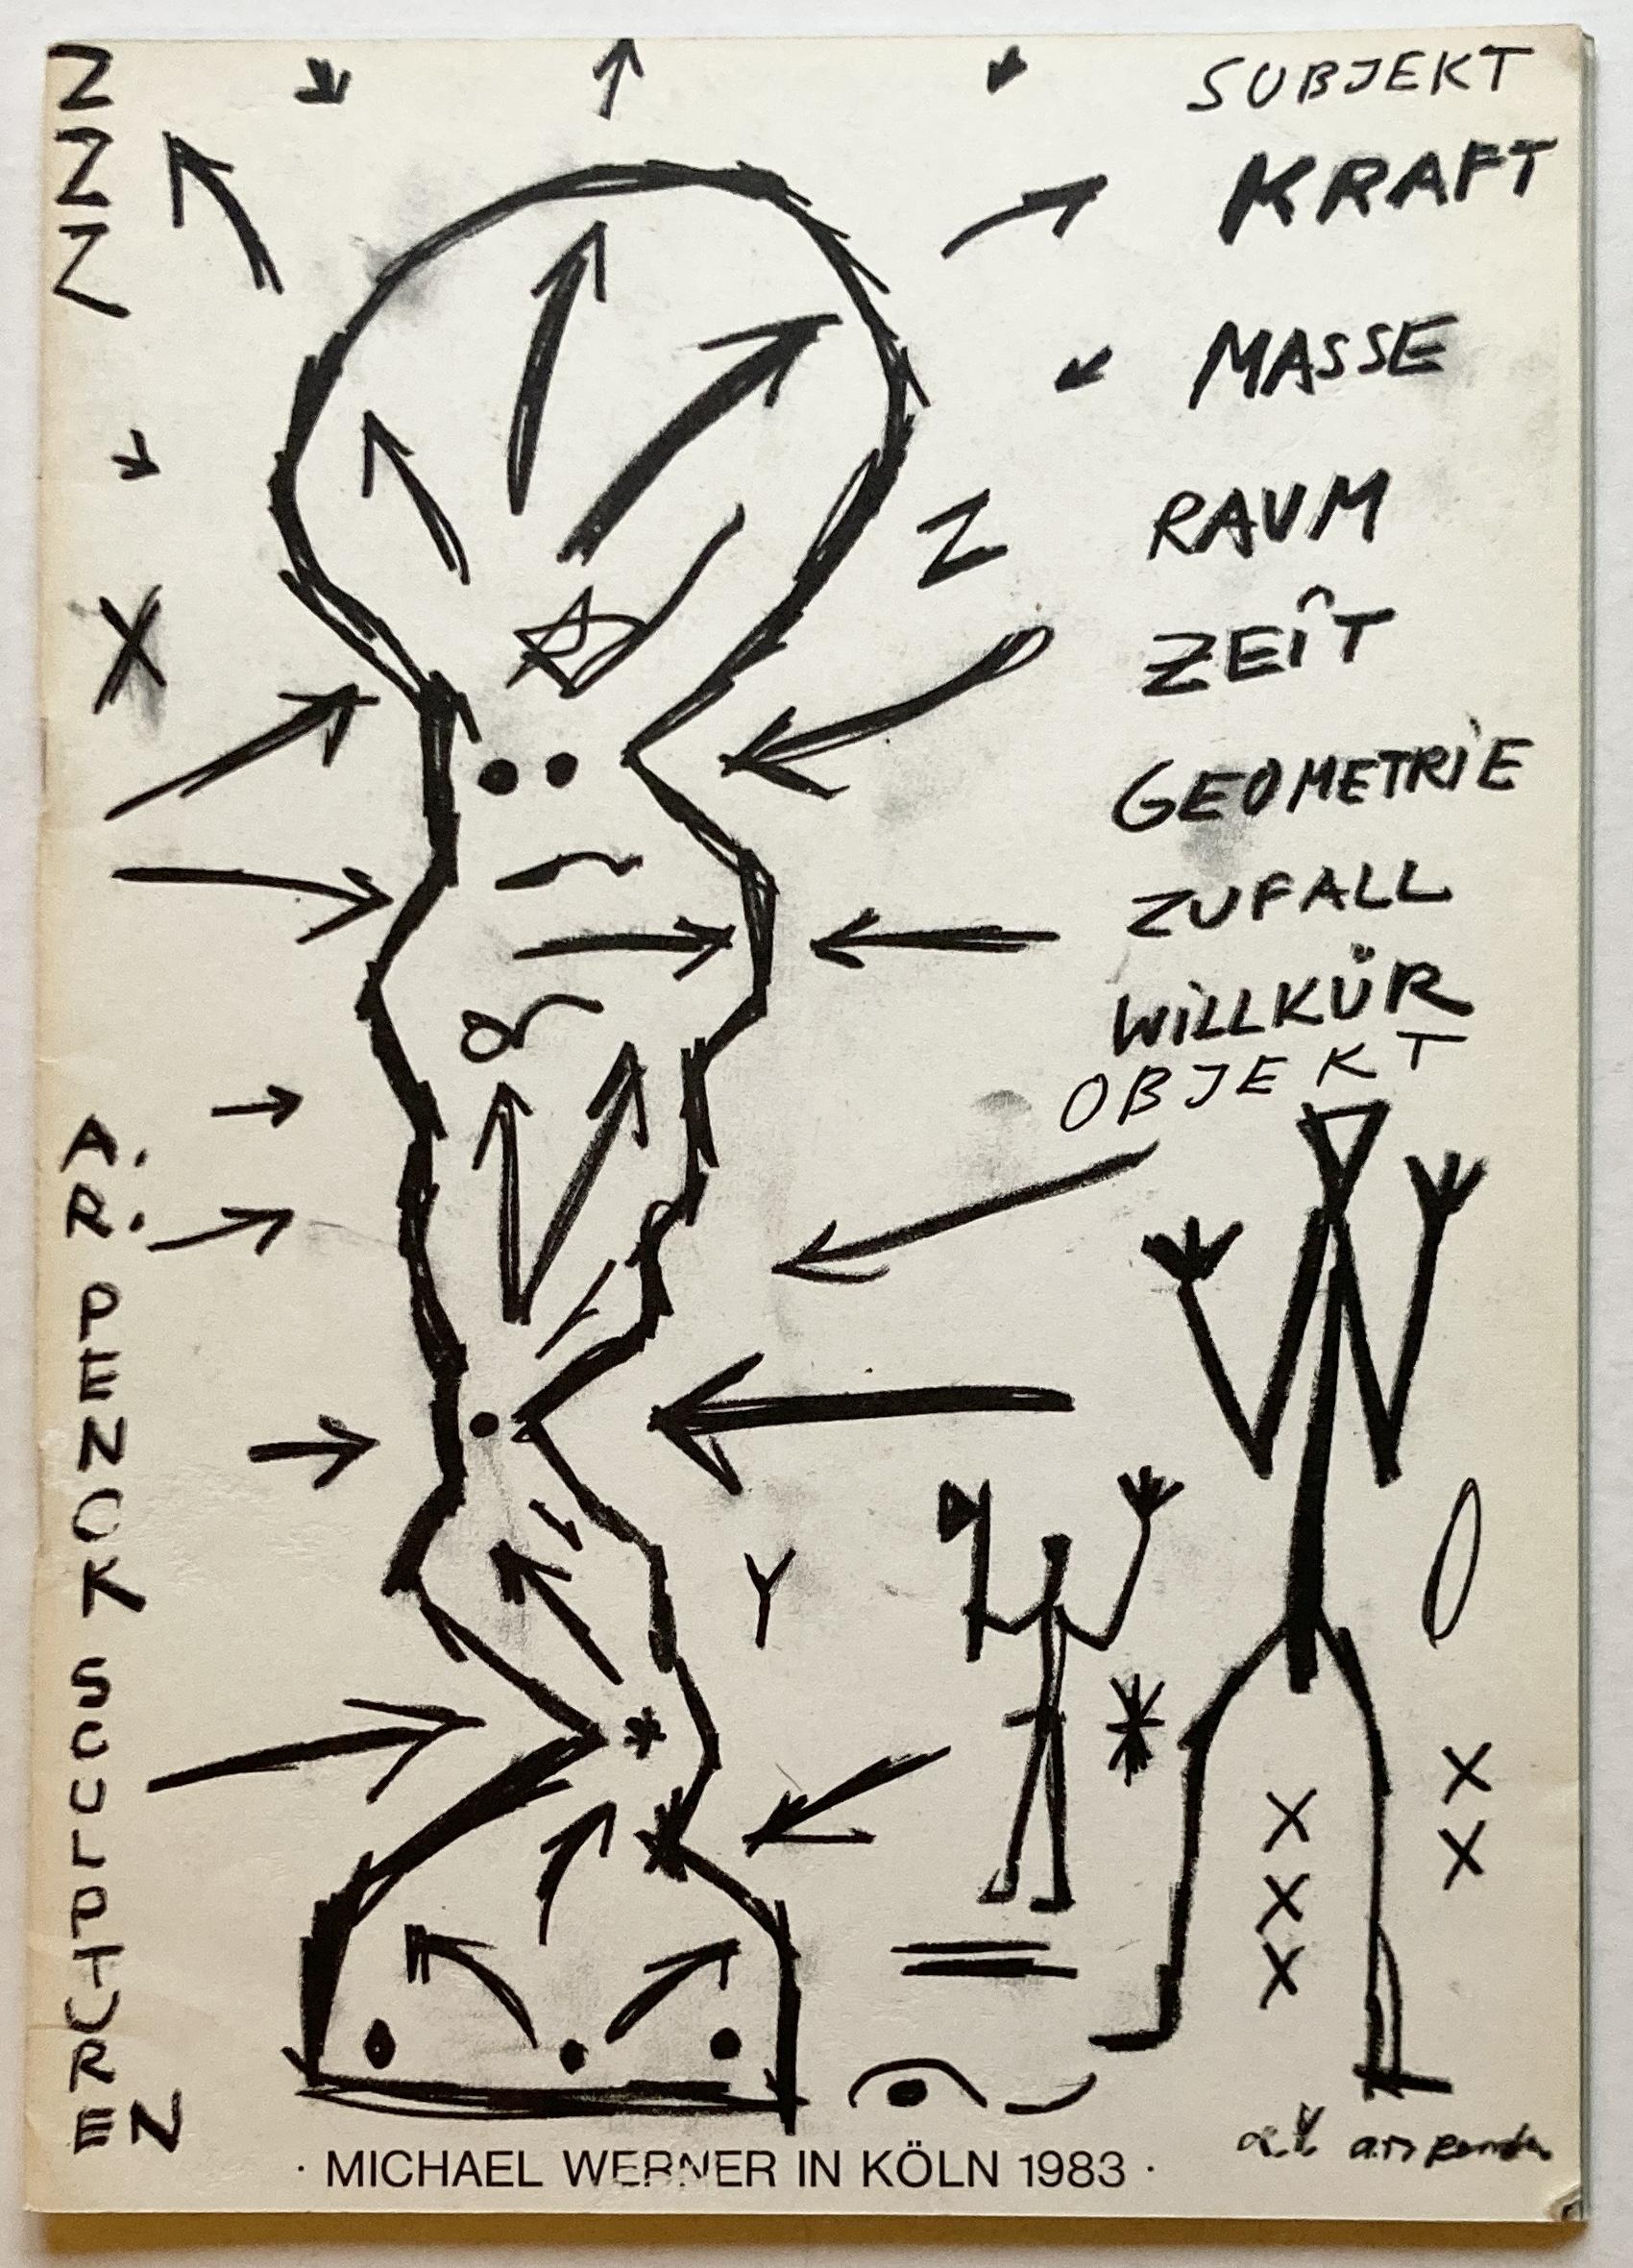 Z
Z
Z
SUBJEKT
KRAFT
MASSE
RAUM
Z
ZEIT
X
GEOMETRIE
ZUFALL
WILLKÜR
OBJEKT
A.
R.
PENCK
SCULPTUREN
Y
X
X
X
X
X
· MICHAEL WERNER IN KÖLN 1983 ·